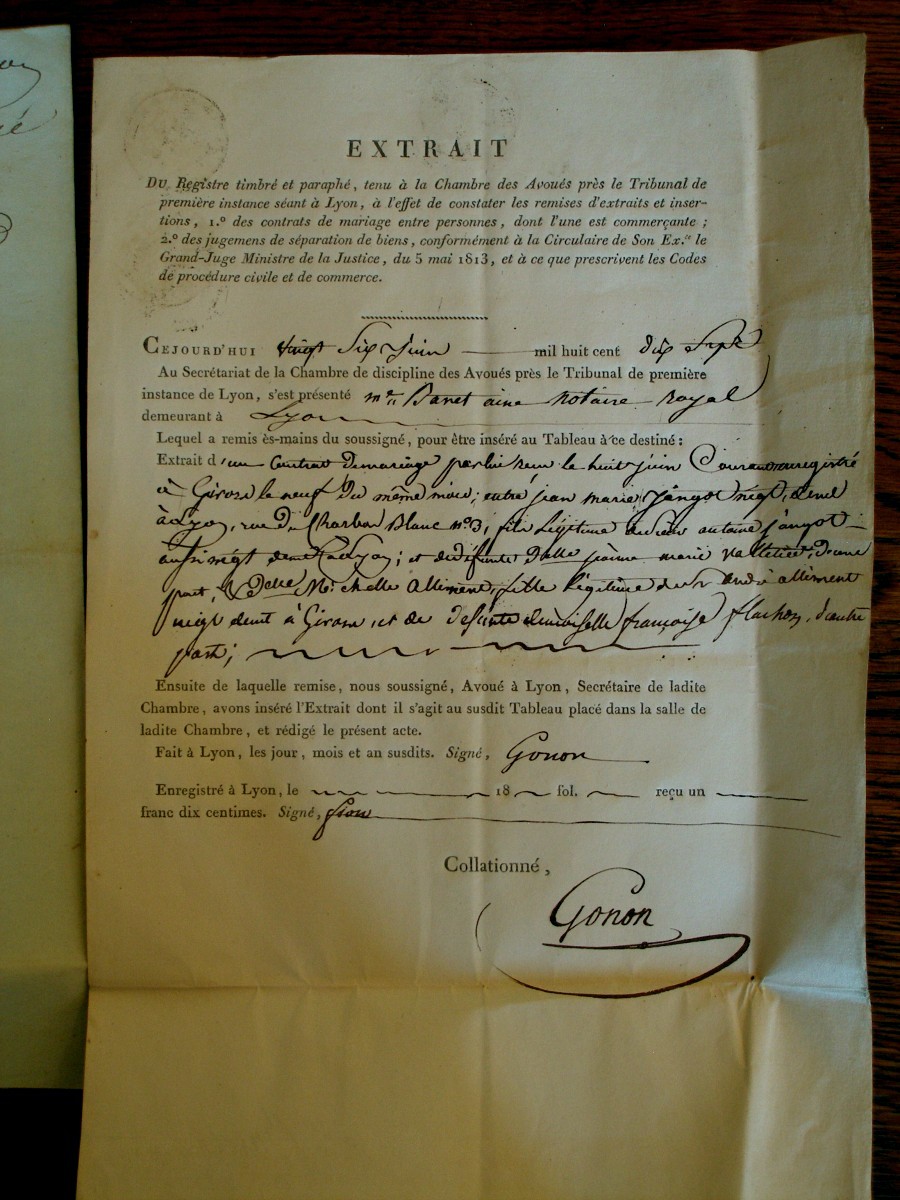 EXTRAIT
Du Registre timbré et paraphé, tenu à la Chambre des Avoués près le Tribunal de
première instance séant à Lyon, à l'effet de constater les remises d'extraits et inser-
tions, 1.º des contrats de mariage entre personnes, dont l'une est commerçante;
2.º des jugemens de séparation de biens, conformément à la Circulaire de Son Ex.ce le
Grand-Juge Ministre de la Justice, du 5 mai 1813, et à ce que prescrivent les Codes
de procédure civile et de commerce.
CEJOURD'HUI vingt Six Juin mil huit cent dix Sept
Au Secrétariat de la Chambre de discipline des Avoués près le Tribunal de première
instance de Lyon, s'est présenté me Banet ainé Notaire Royal
demeurant à Lyon
Lequel a remis ès-mains du soussigné, pour être inséré au Tableau à ce destiné:
Extrait d'un Contrat de mariage par lui reçu le huit juin Courant enregistré
à le neuf du même mois; entre jean marie négt, demt
à Lyon, rue du Charbon Blanc nº 3, fils Légitime de antoine
aussi négt demt à Lyon; et de défunte Dlle marie d'une
part, & Delle fille légitime de sr andré alliment
négt demt à et de défunte demoiselle françoise d'autre
part;
Ensuite de laquelle remise, nous soussigné, Avoué à Lyon, Secrétaire de ladite
Chambre, avons inséré l'Extrait dont il s'agit au susdit Tableau placé dans la salle de
ladite Chambre, et rédigé le présent acte.
Fait à Lyon, les jour, mois et an susdits. Signé, Gonon
Enregistré à Lyon, le 18 fol. reçu un
franc dix centimes. Signé,
Collationné,
Gonon